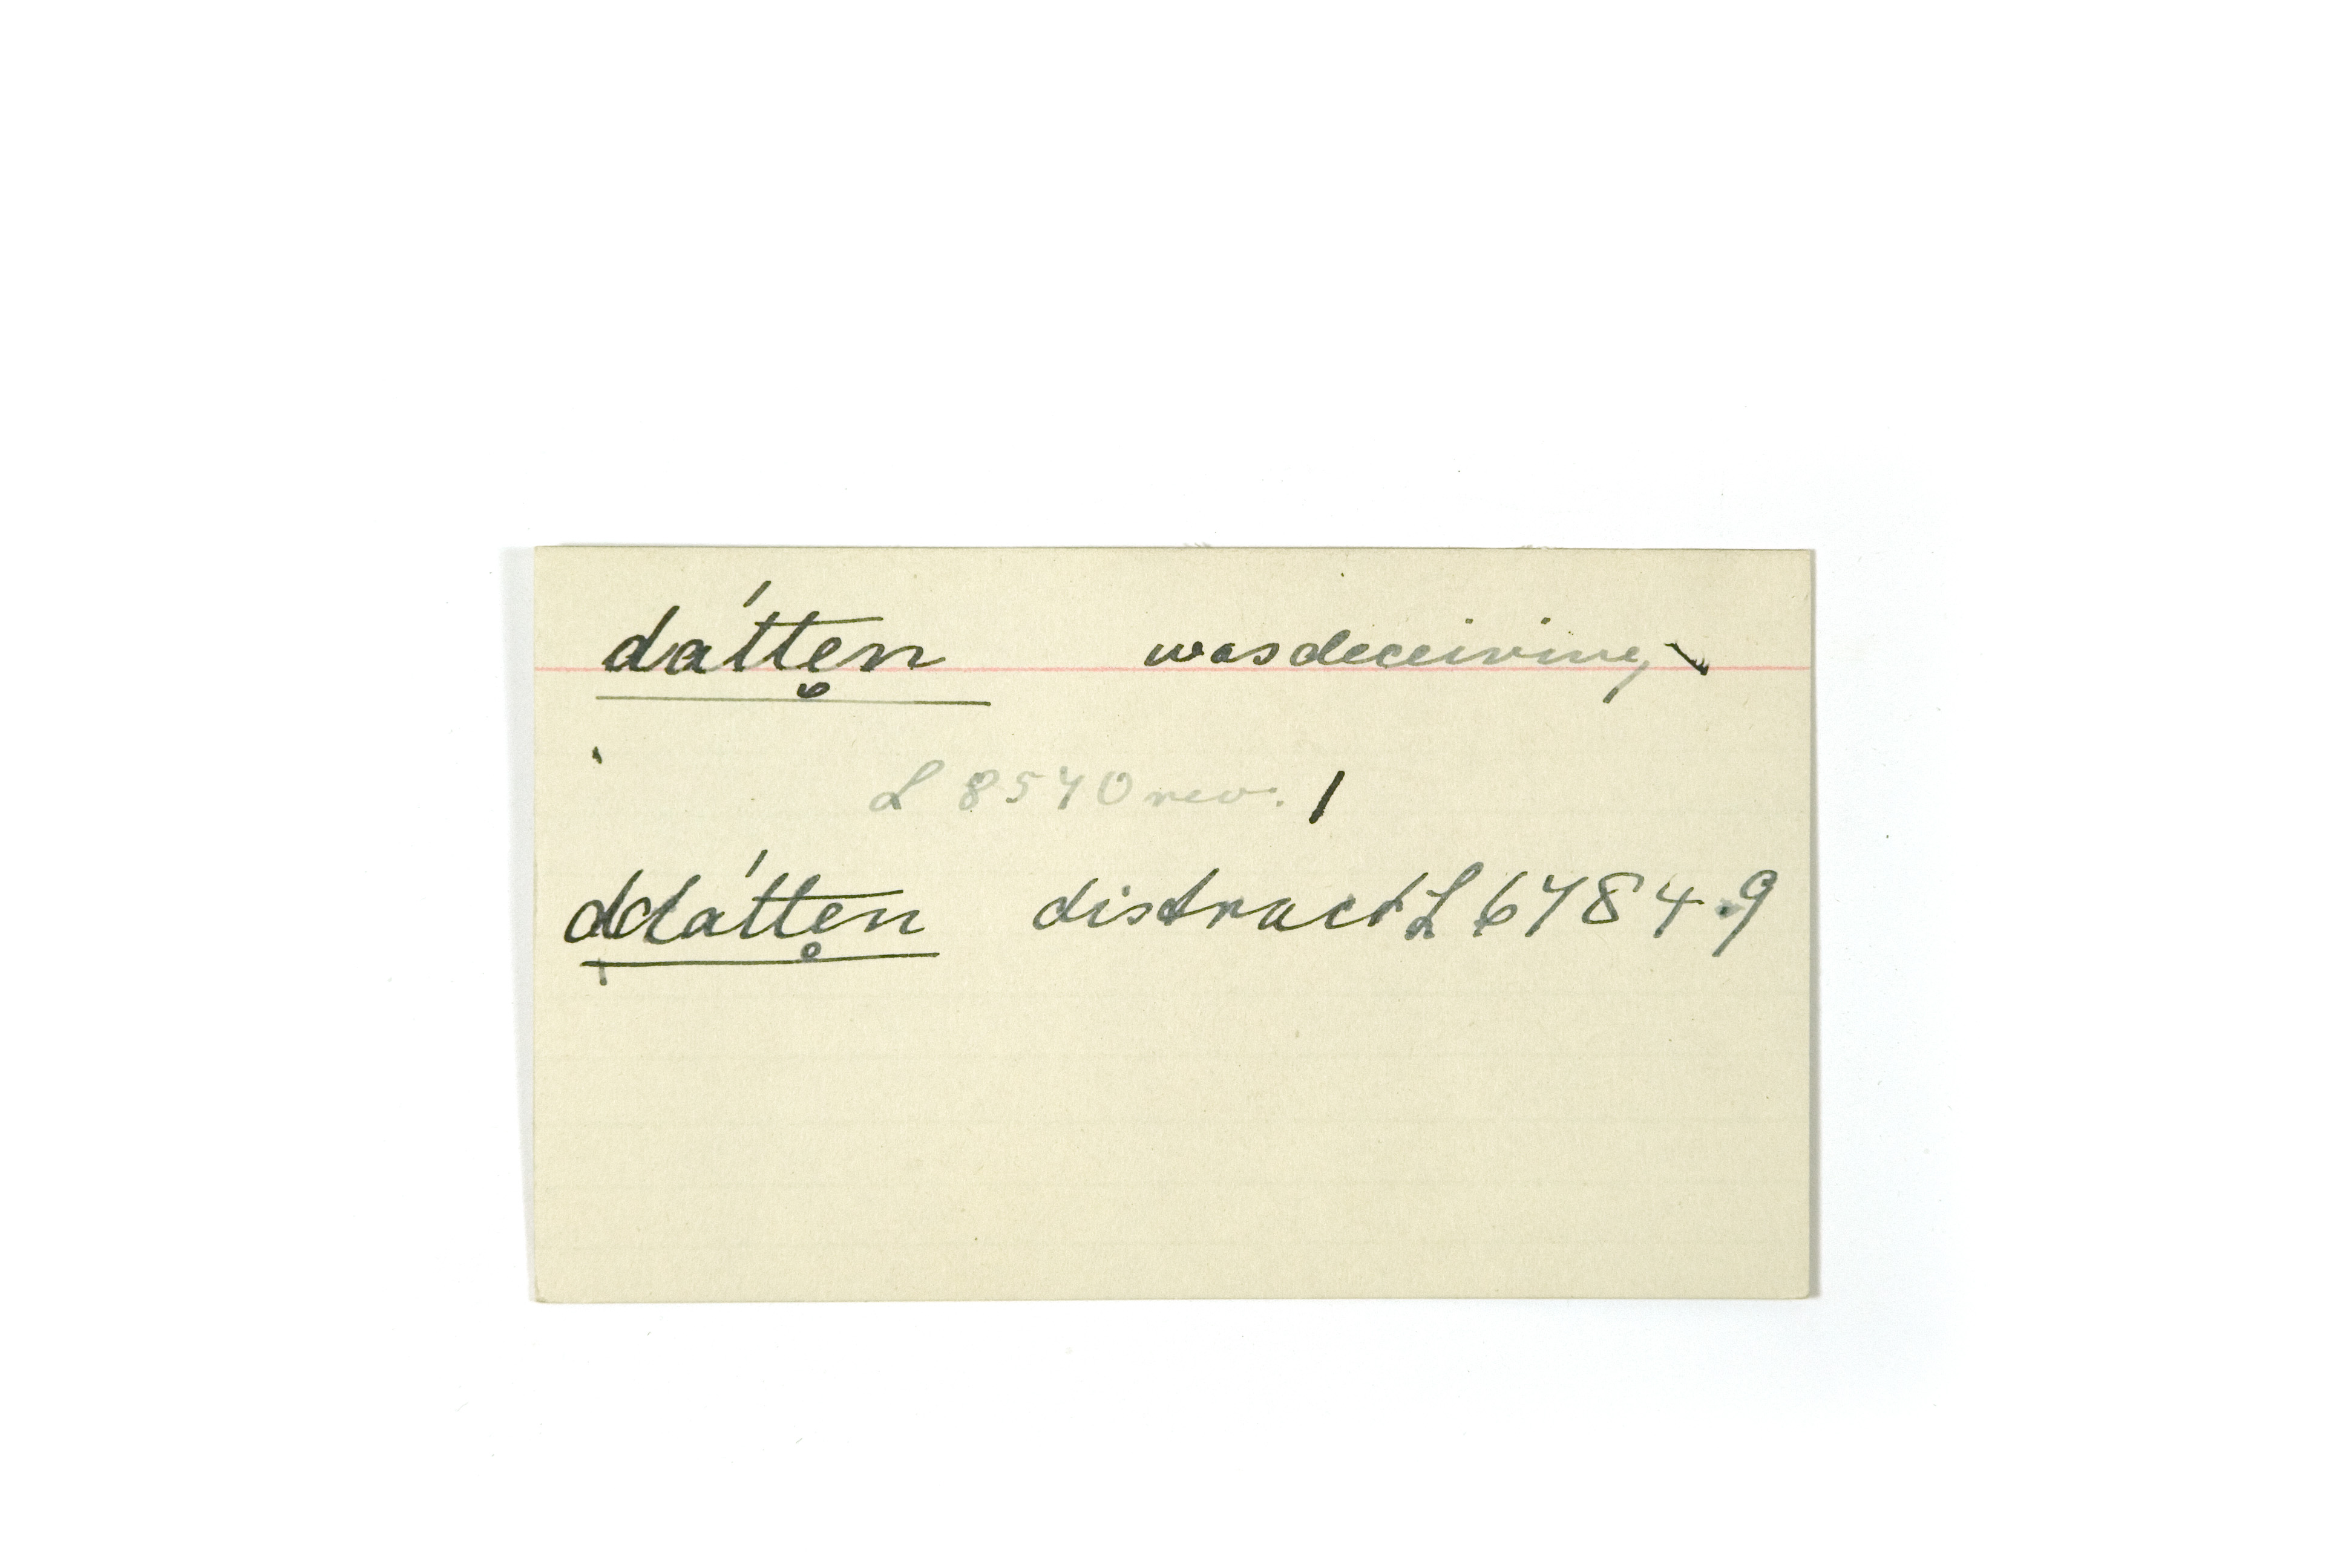 dátte̥n was deceiving
L 8540 rev. 1
ddátte̥n distract L 6784.9